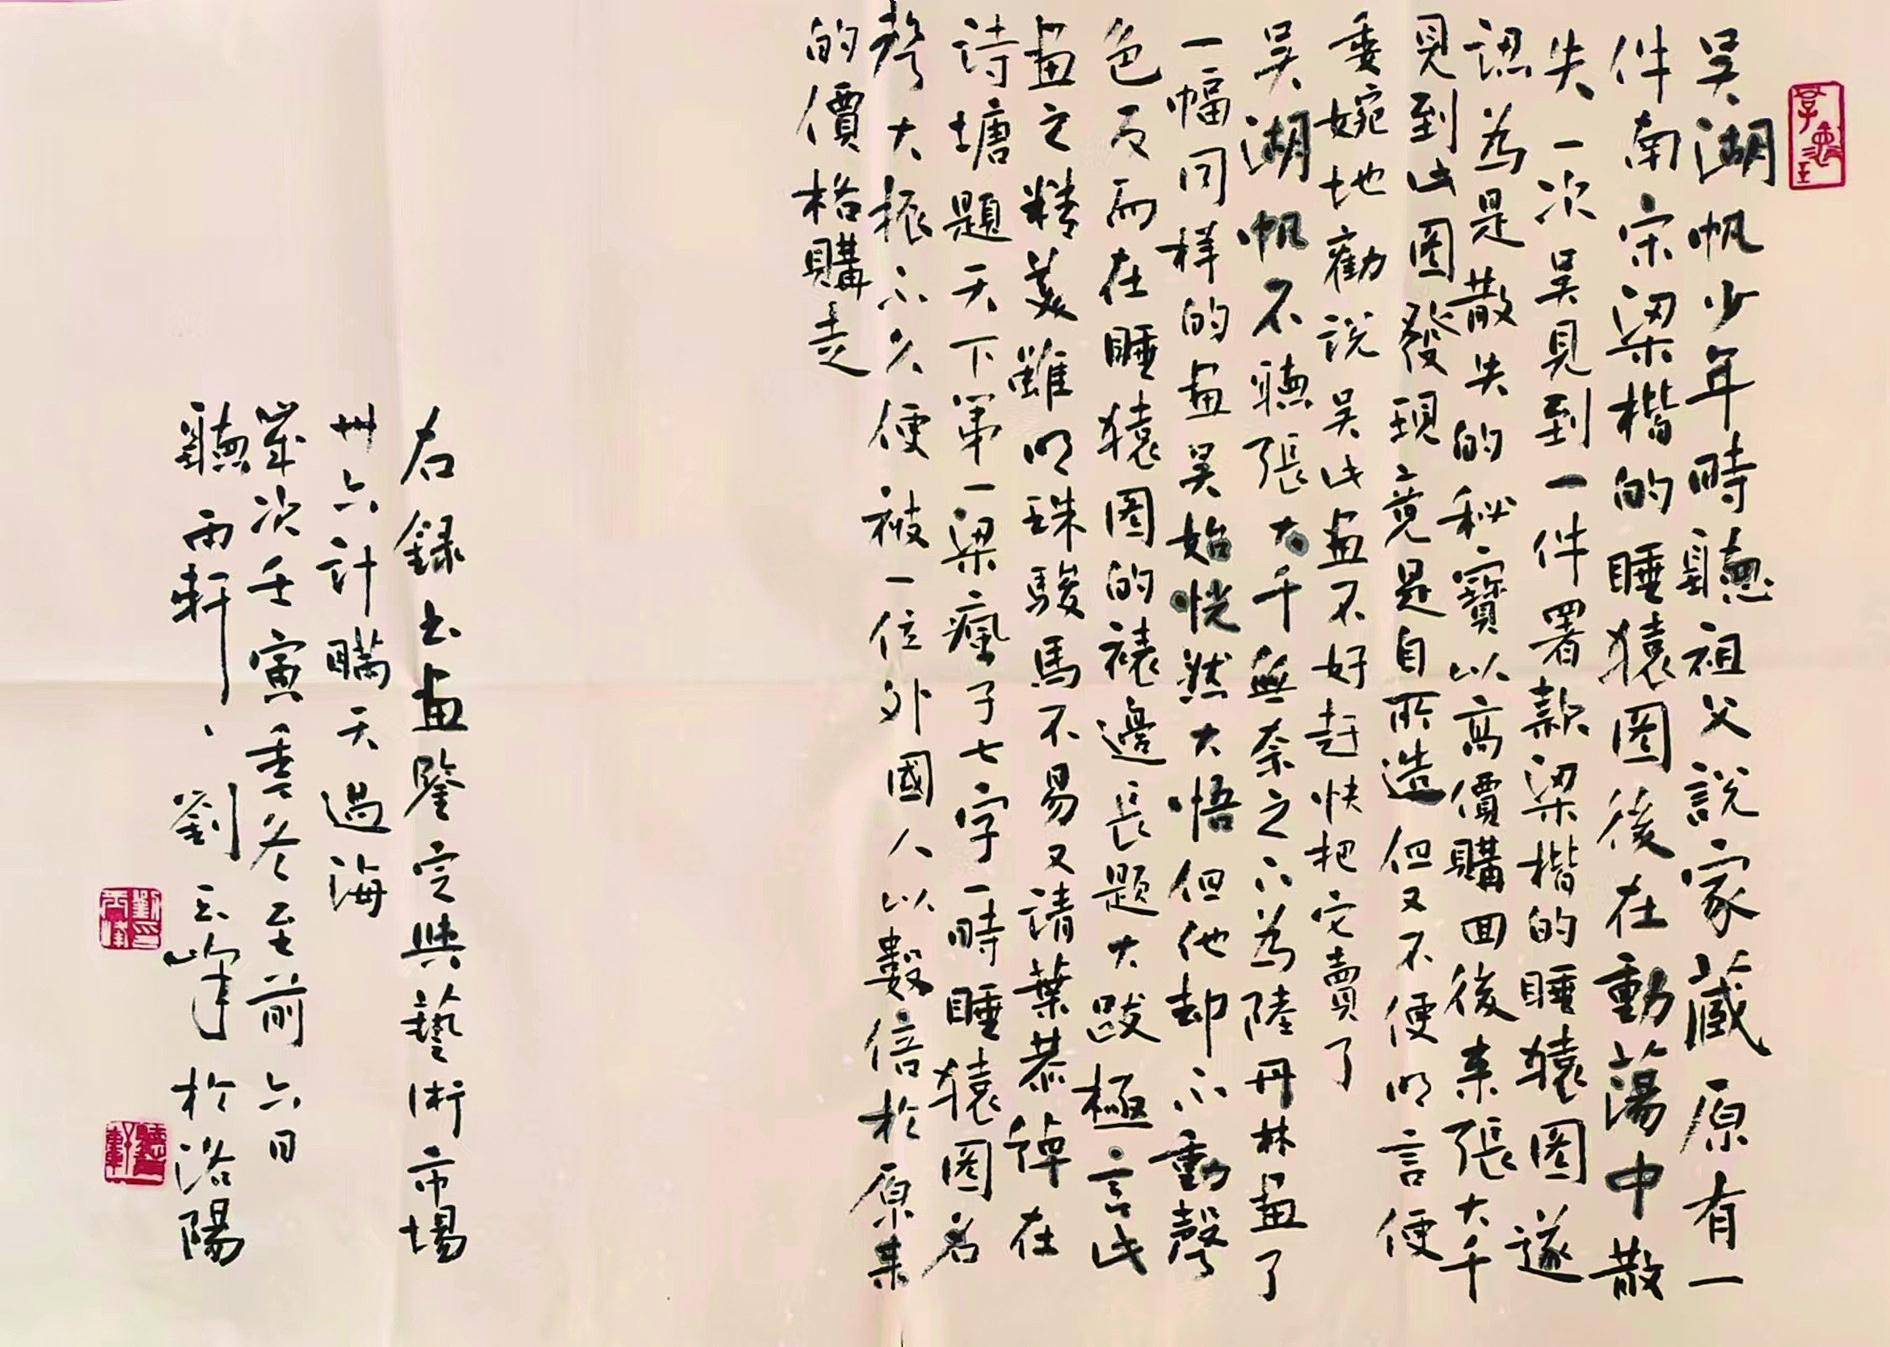 吴湖帆少年時聽祖父説家藏原有一
件南宋梁楷的睡猿圖後在動蕩中散
失一次吴見到一件署款梁楷的睡猿圖遂
認為是散失的秘寶以高價購回後来張大千
見到此圖發現竟是自所造但又不便明言便
委婉地勸説吴此画不好赶快把它賣了
吴湖帆不聽張大千無奈之下為陸丹林画了
一幅同样的画吴始恍然大悟但他却不動聲
色反而在睡猿圖的裱邊長題大跋極言此
画之精美雖明珠駿馬不易又請葉恭綽在
詩塘題天下第一梁瘋子七字一時睡猿圖名
聲大振不久便被一位外國人以數倍於原来
的價格購走
右録书画鑒定與藝術市場
卅六计瞞天過海
歲次壬寅季冬至前六日
聽雨軒、劉玉峰於洛陽